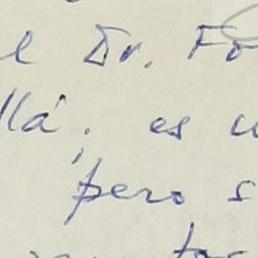 l Dr. Fo
llá; es u
pero s